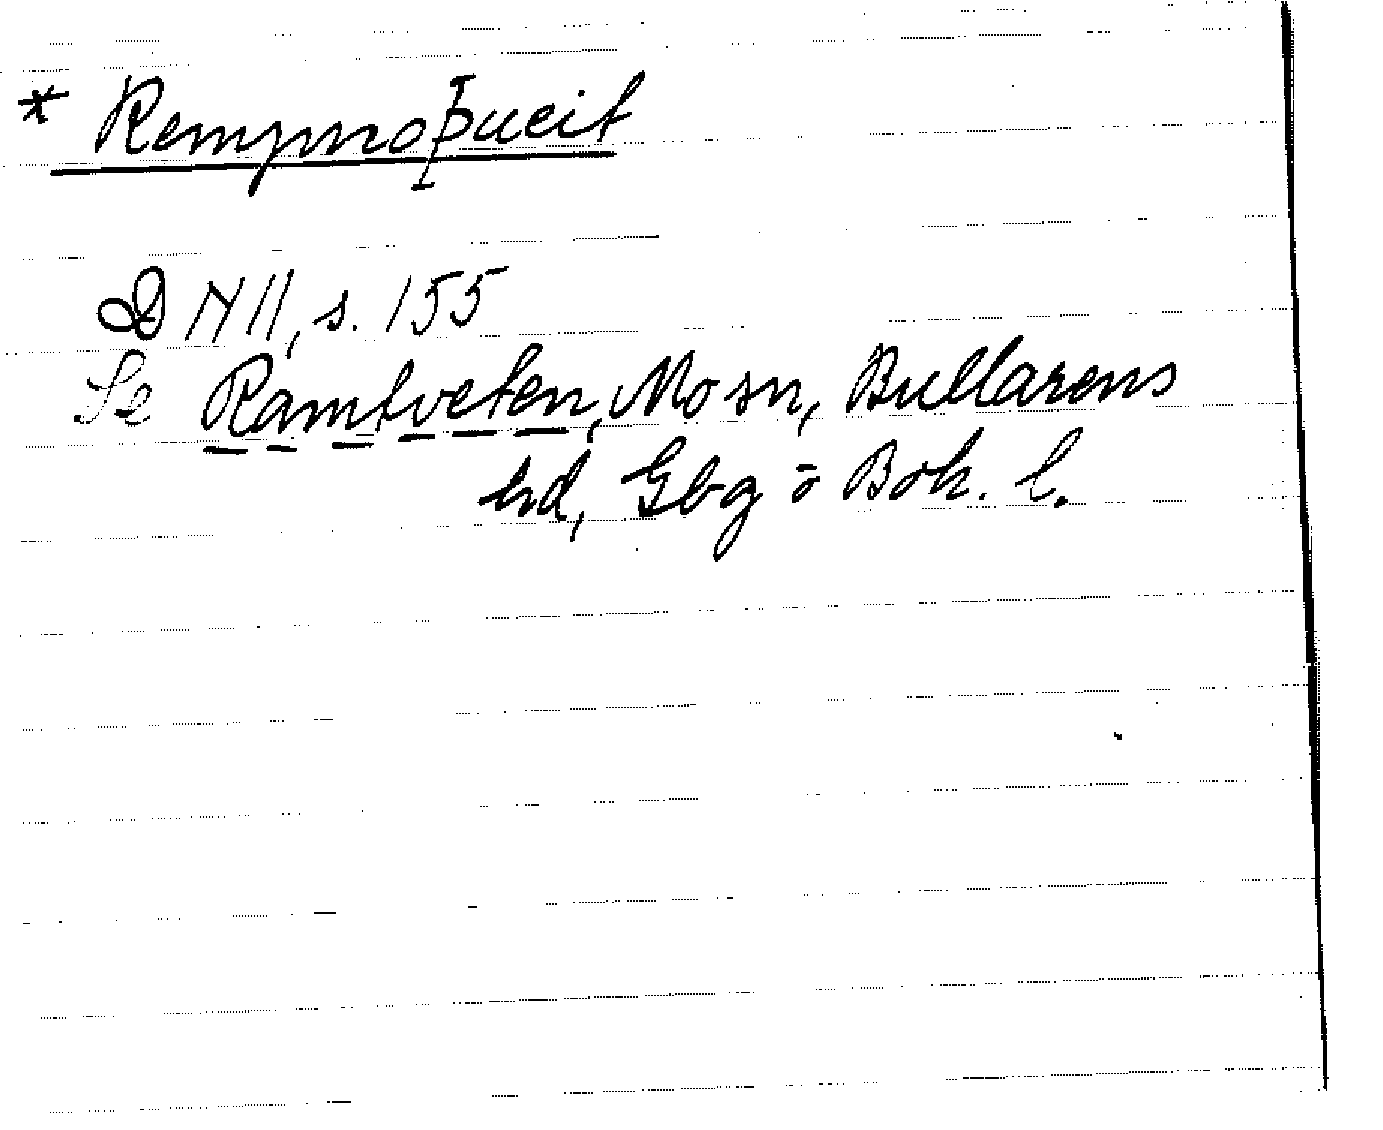 * Rempmoþueit
DN II, s. 155
Se Ramtveten, Mo sn, Bullarens
hd, Gbg o Boh. l.